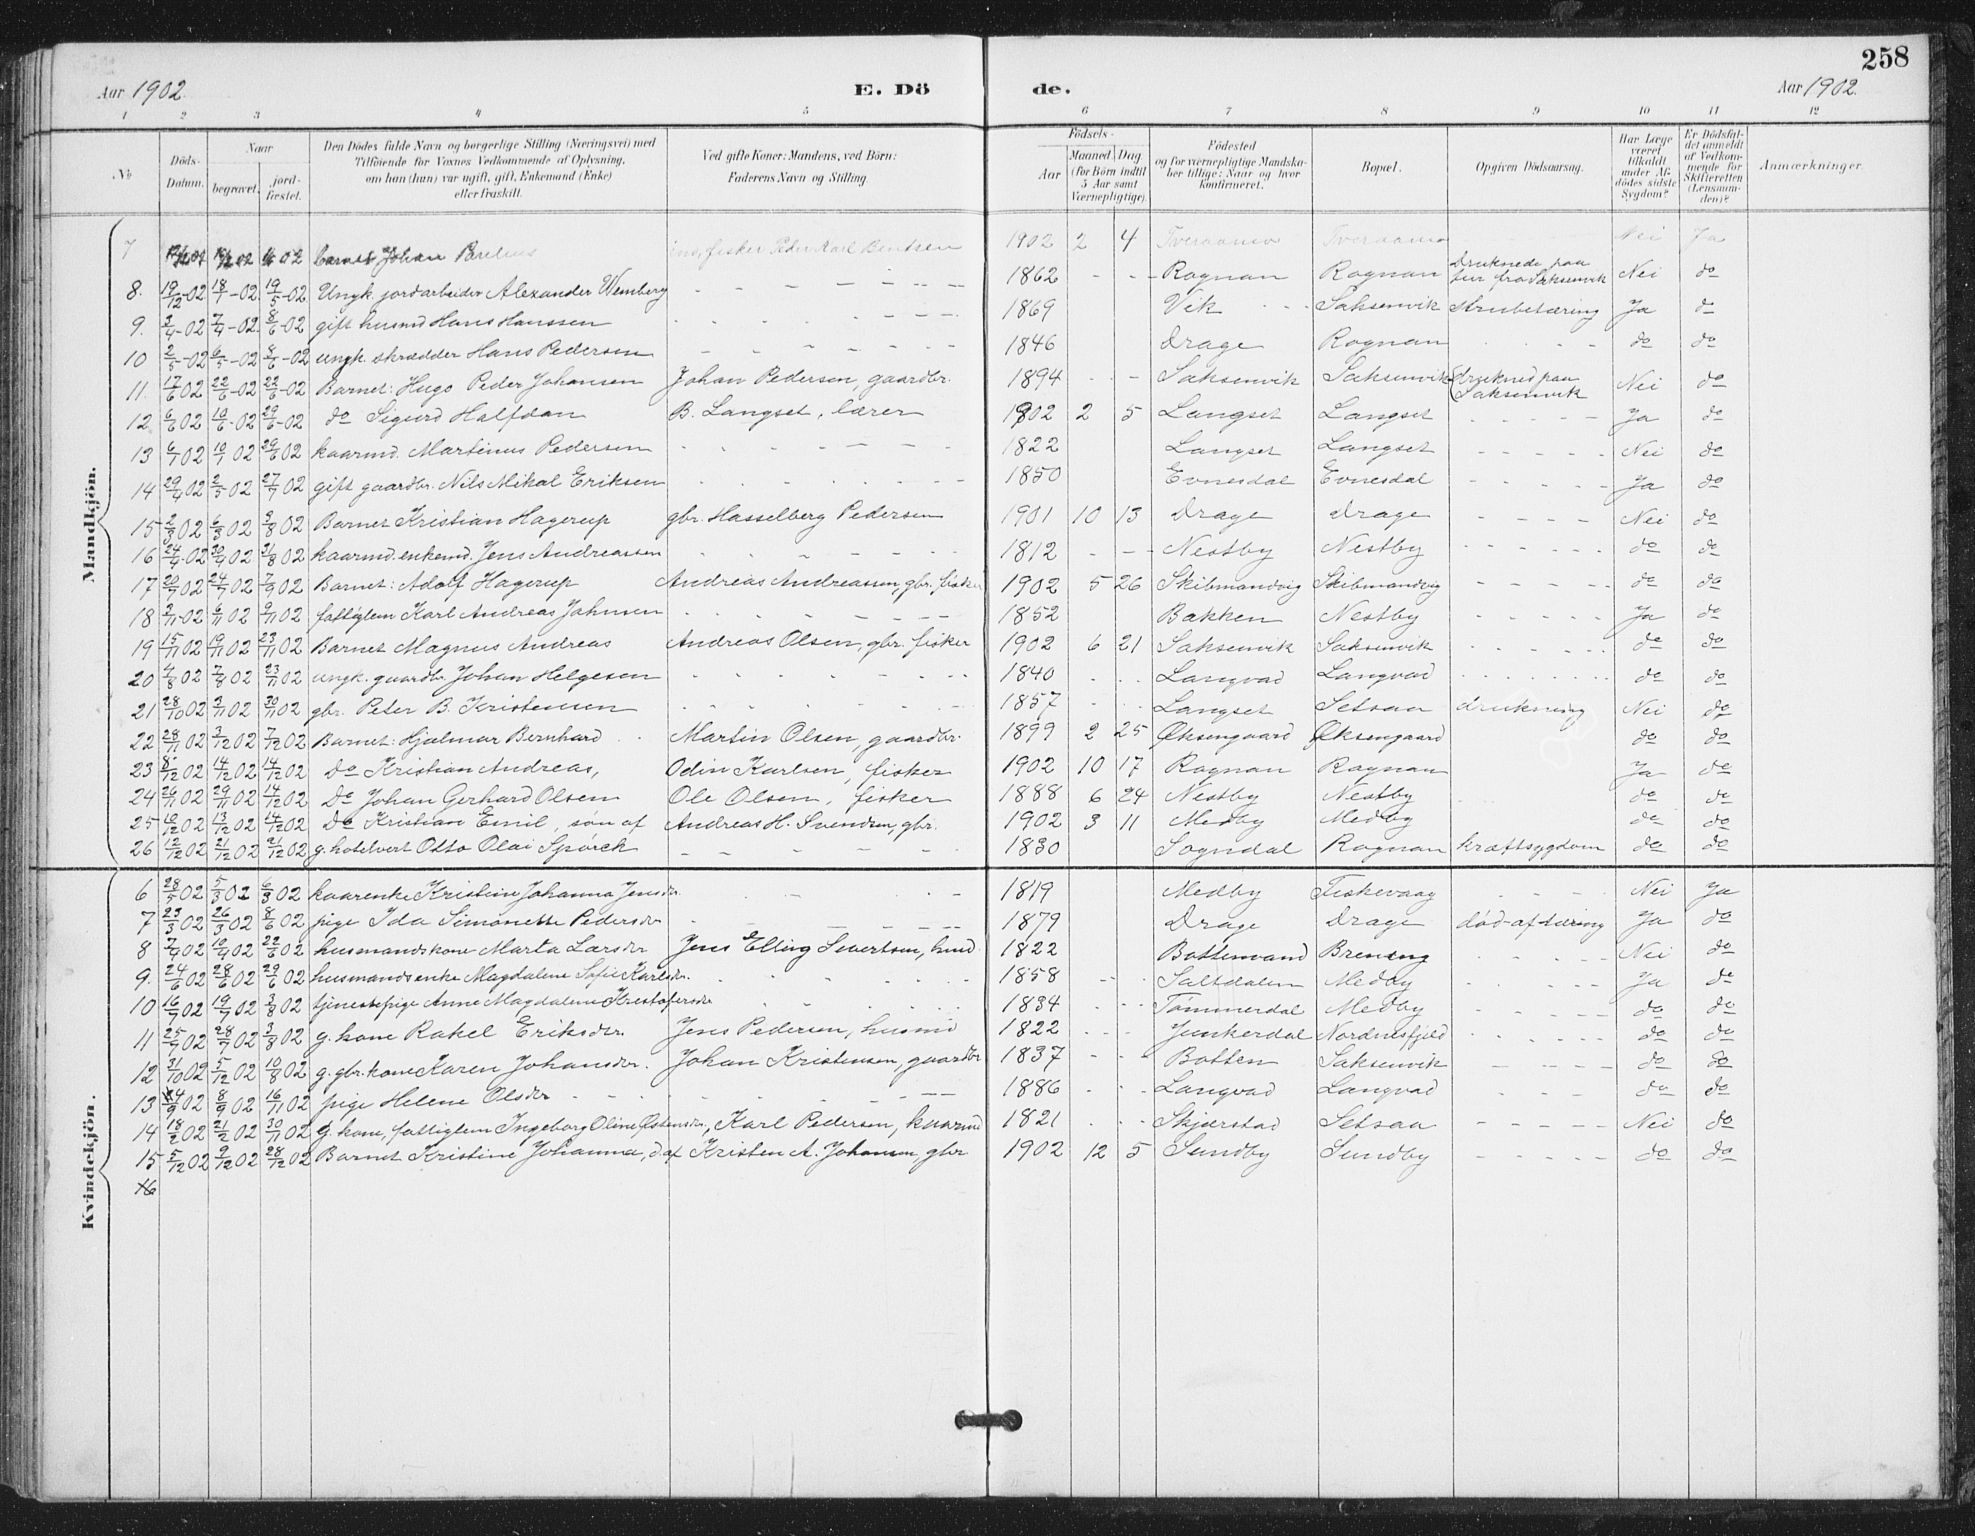 258
Aar 1902. E. Dö de. Aar 1902.
1 2 3 4 5 6 7 8 9 10 11 12
№ Döds-Datum. Naar begravet. jord-fæstet. Den Dödes fulde Navn og borgerlige Stilling (Næringsvei) med Tilföiende for Voxnes Vedkommende af Oplysning, om han (hun) var ugift, gift, Enkemand (Enke) eller fraskilt. Ved gifte Koner: Mandens, ved Börn: Faderens Navn og Stilling Födsels- Aar Maaned Dag (for Börn indtil 5 Aar samt Værnepligtige). Födested og for værnepligtige Mandskaber tillige: Naar og hvor konfirmeret. Bopæl. Opgiven Dödsaarsag. Har Læge været tilkaldt under Afdödes sidste Sygdom? Er Dödsfaldet anmeldt af Vedkommende for Skifteretten (Lensmanden)? Anmærkninger.
Mandkjön.
7 02 barnet Johan fisker Peder Karl Bentsen 1902 2 4 Nei Ja
8. 19/12-02 18/1-02 19/5-02 Ungk. jordarbeider Alexander Wemberg 1862 Rognan Rognan Druknede paa tur fra Saksenvik Nei do
9. 3/4-02 7/4-02 8/6-02 gift husmd Hans Hanssen 1869 Vik Saksenvik Strubetæring Ja do
10 2/5-02 6/5-02 8/6-02 ungk. skrædder Hans Pedersen 1846 Drage Rognan do do
11. 17/6 02 22/6-02 22/6-02 Barnet: Hugo Peder Johansen Johan Pedersen, gaardbr. 1894 Saksenvik Saksenvik druknet paa Saksenvik Nei do
12. 6/6 02 10/6-02 29/6-02 do Sigurd Halfdan B. Langset, lærer 1902 2 5 Langset Langset Ja do
13 6/7 02 10/7 02 29/6 02 kaarmd. Martinus Pedersen 1822 Langset Langset Nei do
14 29/4 02 2/5 02 27/7 02 gift gaardbr. Nils Mikal Eriksen 1850 Evnesdal Evnesdal Ja do
15 2/3 02 6/3 02 3/8 02 Barnet Kristian Hagerup gbr. Hasselberg Pedersen 1901 10 13 Drage Drage Nei do
16 24/4-02 30/4 02 31/8 02 kaarmd. enkemd. Jens Andreassen 1812 Nestby Nestby do do
17 20/7 02 24/7 02 7/9 02 Barnet: Adolf Hagerup Andreas Andreassen, gbr. fisker 1902 5 26 Skibmandvig Skibmandvig do do
18 2/11-02 6/11 02 9/11 02 fattiglem Karl Andreas Johnsen 1852 Bakken Nestby Ja do
19 15/11 02 19/11 02 23/11 02 Barnet Magnus Andreas Andreas Olsen, gbr. fisker 1902 6 21 Saksenvik Saksenvik do do
20 4/8 02 7/8 02 23/11 02 ungk. gaardbr. Johan Helgesen 1840 Langvad Langvad do do
21 28/10 02 3/11 02 30/11 02 gbr. Peter B. Kristensen 1857 Langset Setsaa drukning Nei do
22 28/11 02 3/12 02 7/12 02 Barnet: Hjalmar Bernhard Martin Olsen, gaardbr. 1899 2 25 Øksengaard Øksengaard do do
23 8/12 02 14/12 02 14/12 02 do Kristian Andreas, Odin Karlsen, fisker 1902 10 17 Rognan Rognan Ja do
24 26/11 02 29/11 02 14/12 02 Do Johan Gerhard Olsen Ole Olsen, fisker 1888 6 24 Nestby Nestby do do
25 10/12 02 13/12 02 14/12 02 Do Kristian Emil, søn af Andreas H. Svendsen, gbr. 1902 3 11 Medby Medby do do
26 12/12 02 21/12 02 21/12 02 g. hotelvert Otto Olai Spörck 1830 Sogndal Rognan kræftsygdom do do
Kvindekjön.
6 28/5 02 5/3 02 6/3 02 kaarenke Kristine Johanna Jensdr. 1819 Medby Fiskevaag Nei Ja
7 23/3 02 26/3 02 8/6 02 pige Ida Simonette Pedersdr 1879 Drage Drage död af tæring Ja do
8 7/4 02 10/4 02 22/6 02 husmandskone Marta Larsdr Jens Elling Sivertsen, hmd. 1822 Bottenvand Breneng Nei do
9. 24/6 02 28/6 02 29/6 02 husmandsenke Magdalene Sofie Karlsdr. 1858 Saltdalen Medby Ja do
10 16/7 02 19/7 02 3/8 02 tjenestepige Anne Magdalene Kristofersdr 1834 Tömmerdal Medby do do
11 25/7 02 28/7 02 3/8 02 g. kone Rakel Eriksdr. Jens Pedersen, husmd 1822 Junkerdal Nordnesfjeld do do
12 31/10 02 5/12 02 10/8 02 g. gbr. kone Karen Johansdr. Johan Kristensen, gaardbr 1837 Botten Saksenvik do do
13 4/9 02 8/9 02 16/11 02 pige Helene Olsdr 1886 Langvad Langvad do do
14 18/2 02 21/2 02 30/11 02 g. kone, fattiglem Ingeborg Oline Østensdr, Karl Pedersen, kaarmd 1821 Skjerstad Setsaa Nei do
15 5/12 02 9/12 02 28/12 02 Barnet Kristine Johanna, d. af Kristen A. Johansen, gbr 1902 12 5 Sundby Sundby do do
16